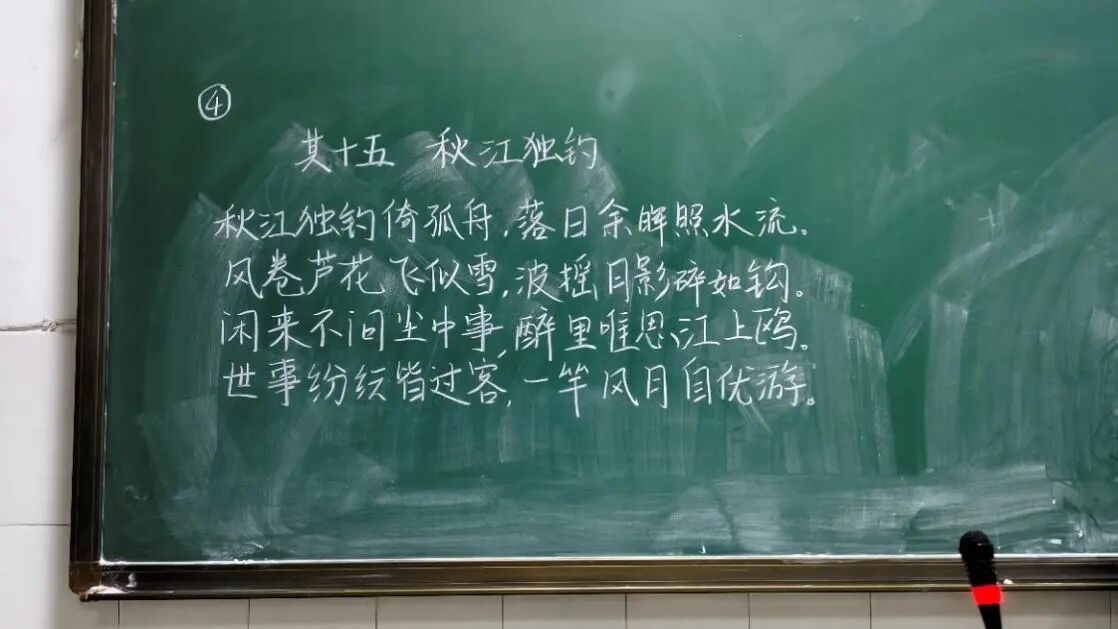 ④
其十五 秋江独钓
秋江独钓倚孤舟,落日余晖照水流。
风卷芦花飞似雪,波摇月影碎如钩。
闲来不问尘中事,醉里唯思江上鸥。
世事纷纭皆过客,一竿风月自优游。